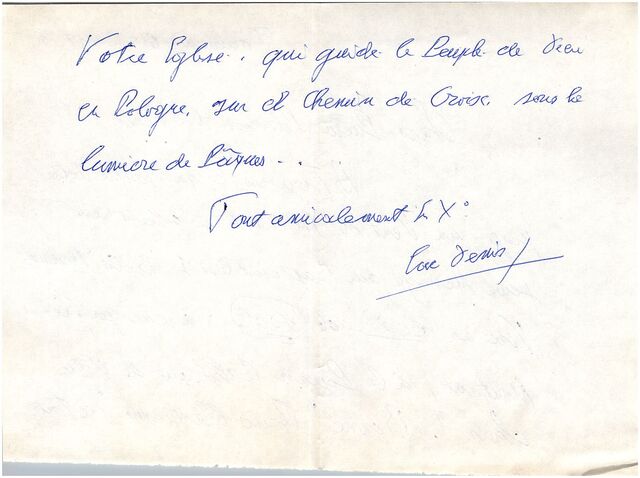 Votre Eglise, qui guide le Peuple de Dieu
en Pologne, sur ce Chemin de Croix, sous la
lumière de Pâques...
Tout amicalement in X°
Luc Denis